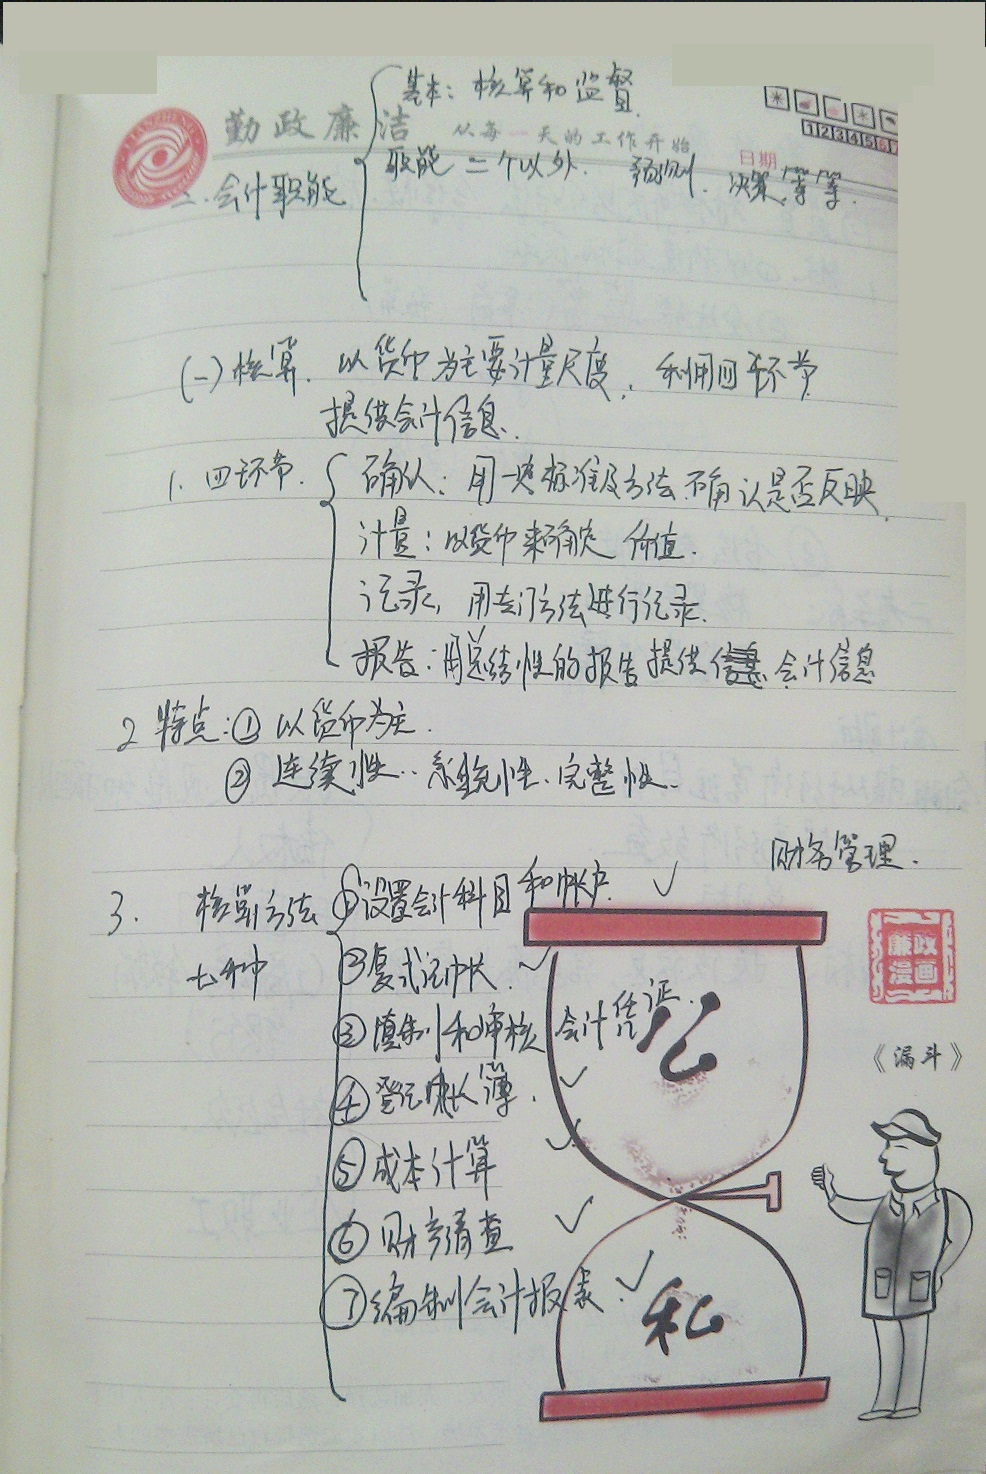 基本：核算和监督.
勤政廉洁 从每一天的工作开始
日期
1 2 3 4 5 6 7
职能 二个以外. 预测. 决策,等等.
二.会计职能
(一)核算. 以货币为主要计量尺度, 利用四个环节
提供会计信息.
1. 四环节. 确认: 用一定标准及方法 确认是否反映.
计量: 以货币来确定 价值.
记录, 用专门方法进行记录.
报告: 用总结性的报告提供 会计信息
2 特点: ① 以货币为主.
② 连续性.. 系统性. 完整性.
财务管理.
3. 核算方法 ①设置会计科目和帐户. ✓
七种 ②复式记帐. ✓
③填制和审核 会计凭证.
④登记账簿. ✓
⑤成本计算 ✓
⑥财产清查 ✓
⑦编制会计报表. ✓
公
私
廉政漫画
《漏斗》